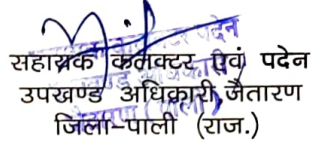 सहायक कलक्टर एवं पदेन
उपखण्ड अधिकारी जैतारण
जिला-पाली (राज.)